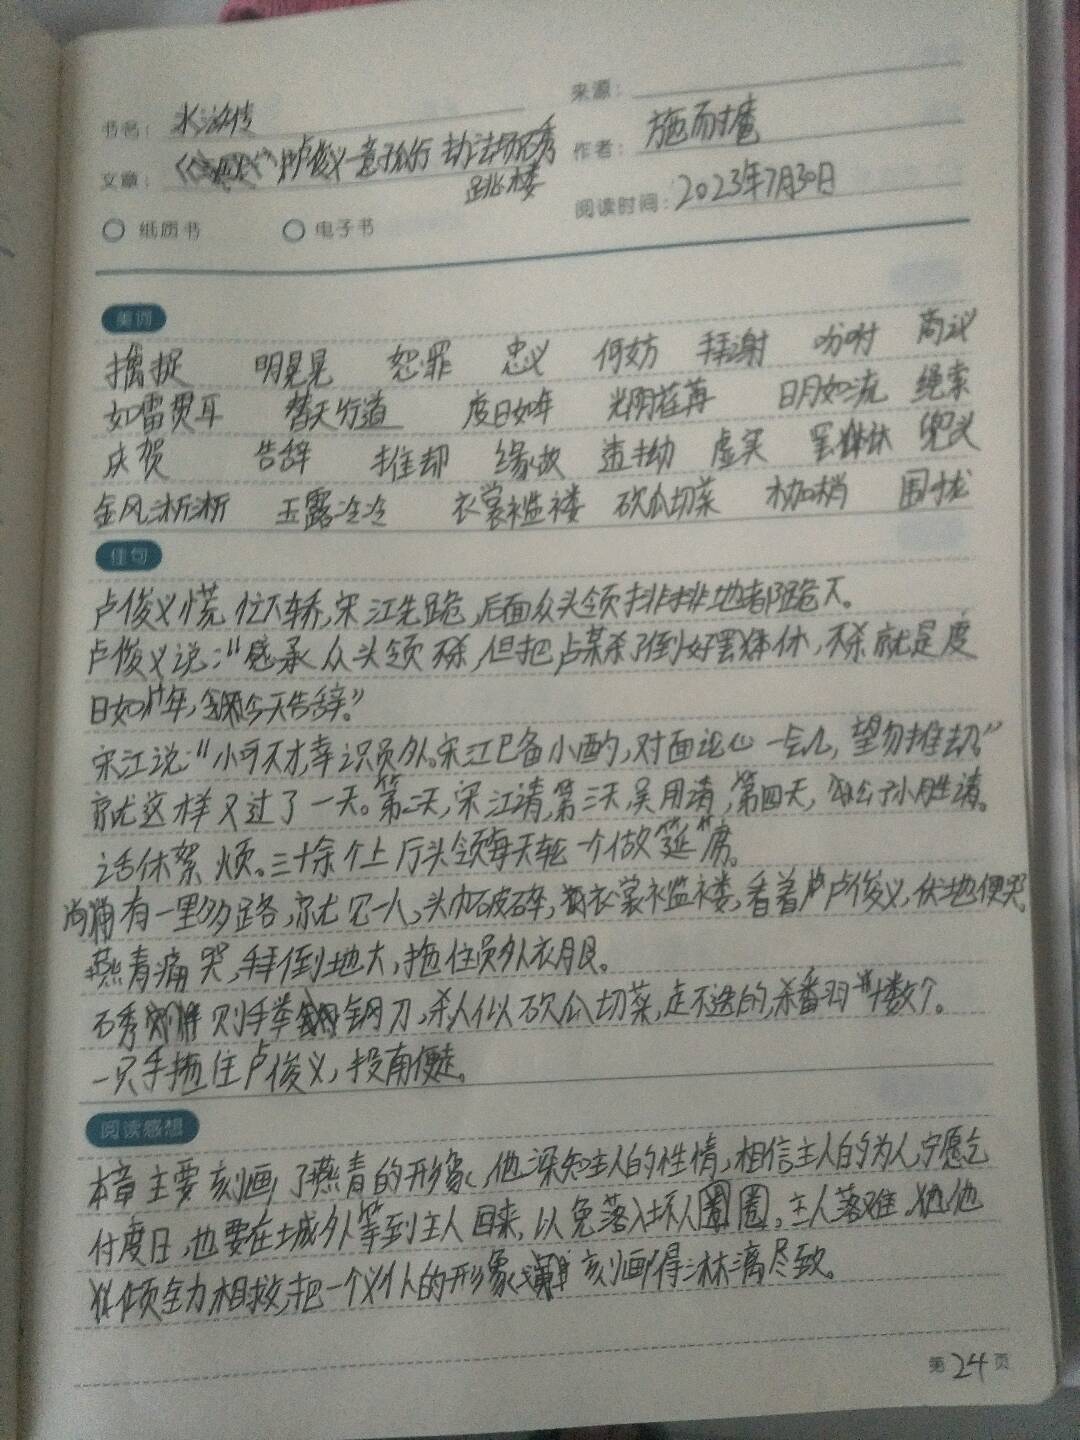 书名：水浒传
来源：
文章：卢俊义一意孤行 劫法场石秀
跳楼
作者：施耐
纸质书
电子书
阅读时间：2023年7月30日
美词
擒捉 明晃晃 恕罪 忠义 何妨 拜谢 吩咐 商议
如雷贯耳 替天行道 度日如年 光阴荏苒 日月如流 绳索
庆贺 告辞 推却 缘故 虚实 罢休 兜头
金风淅淅 玉露泠泠 衣裳褴褛 砍瓜切菜 枷梢 围拢
佳句
卢俊义慌忙下轿,宋江先跪,后面众头领排排地都跪下。
卢俊义说:"感承众头领不杀,但把卢某杀了倒好罢休,不杀就是度
日如年,今天告辞。"
宋江说:"小可不才,幸识员外。宋江已备小酌,对面论心一会儿,望勿推却"
就这样又过了一天。第二天,宋江请,第三天,吴用请,第四天,公孙胜请。
话休絮烦。三十余个上厅头领每天轮一个做筵席。
尚有一里多路,就见一人,头巾破碎,衣裳褴褛,看着卢俊义,伏地便哭。
燕青痛哭,拜倒地大,拖住员外衣服。
石秀则手举钢刀,杀人似砍瓜切菜,走不迭的,杀翻十数个。
一只手拖住卢俊义,投南便走。
阅读感想
本章主要刻画了燕青的形象,他深知主人的性情,相信主人的为人,宁愿乞
付度日,也要在城外等到主人回来,以免落入坏人圈圈,主人落难,他
倾全力相救,把一个义仆人的形象刻画得淋漓尽致。
第24页